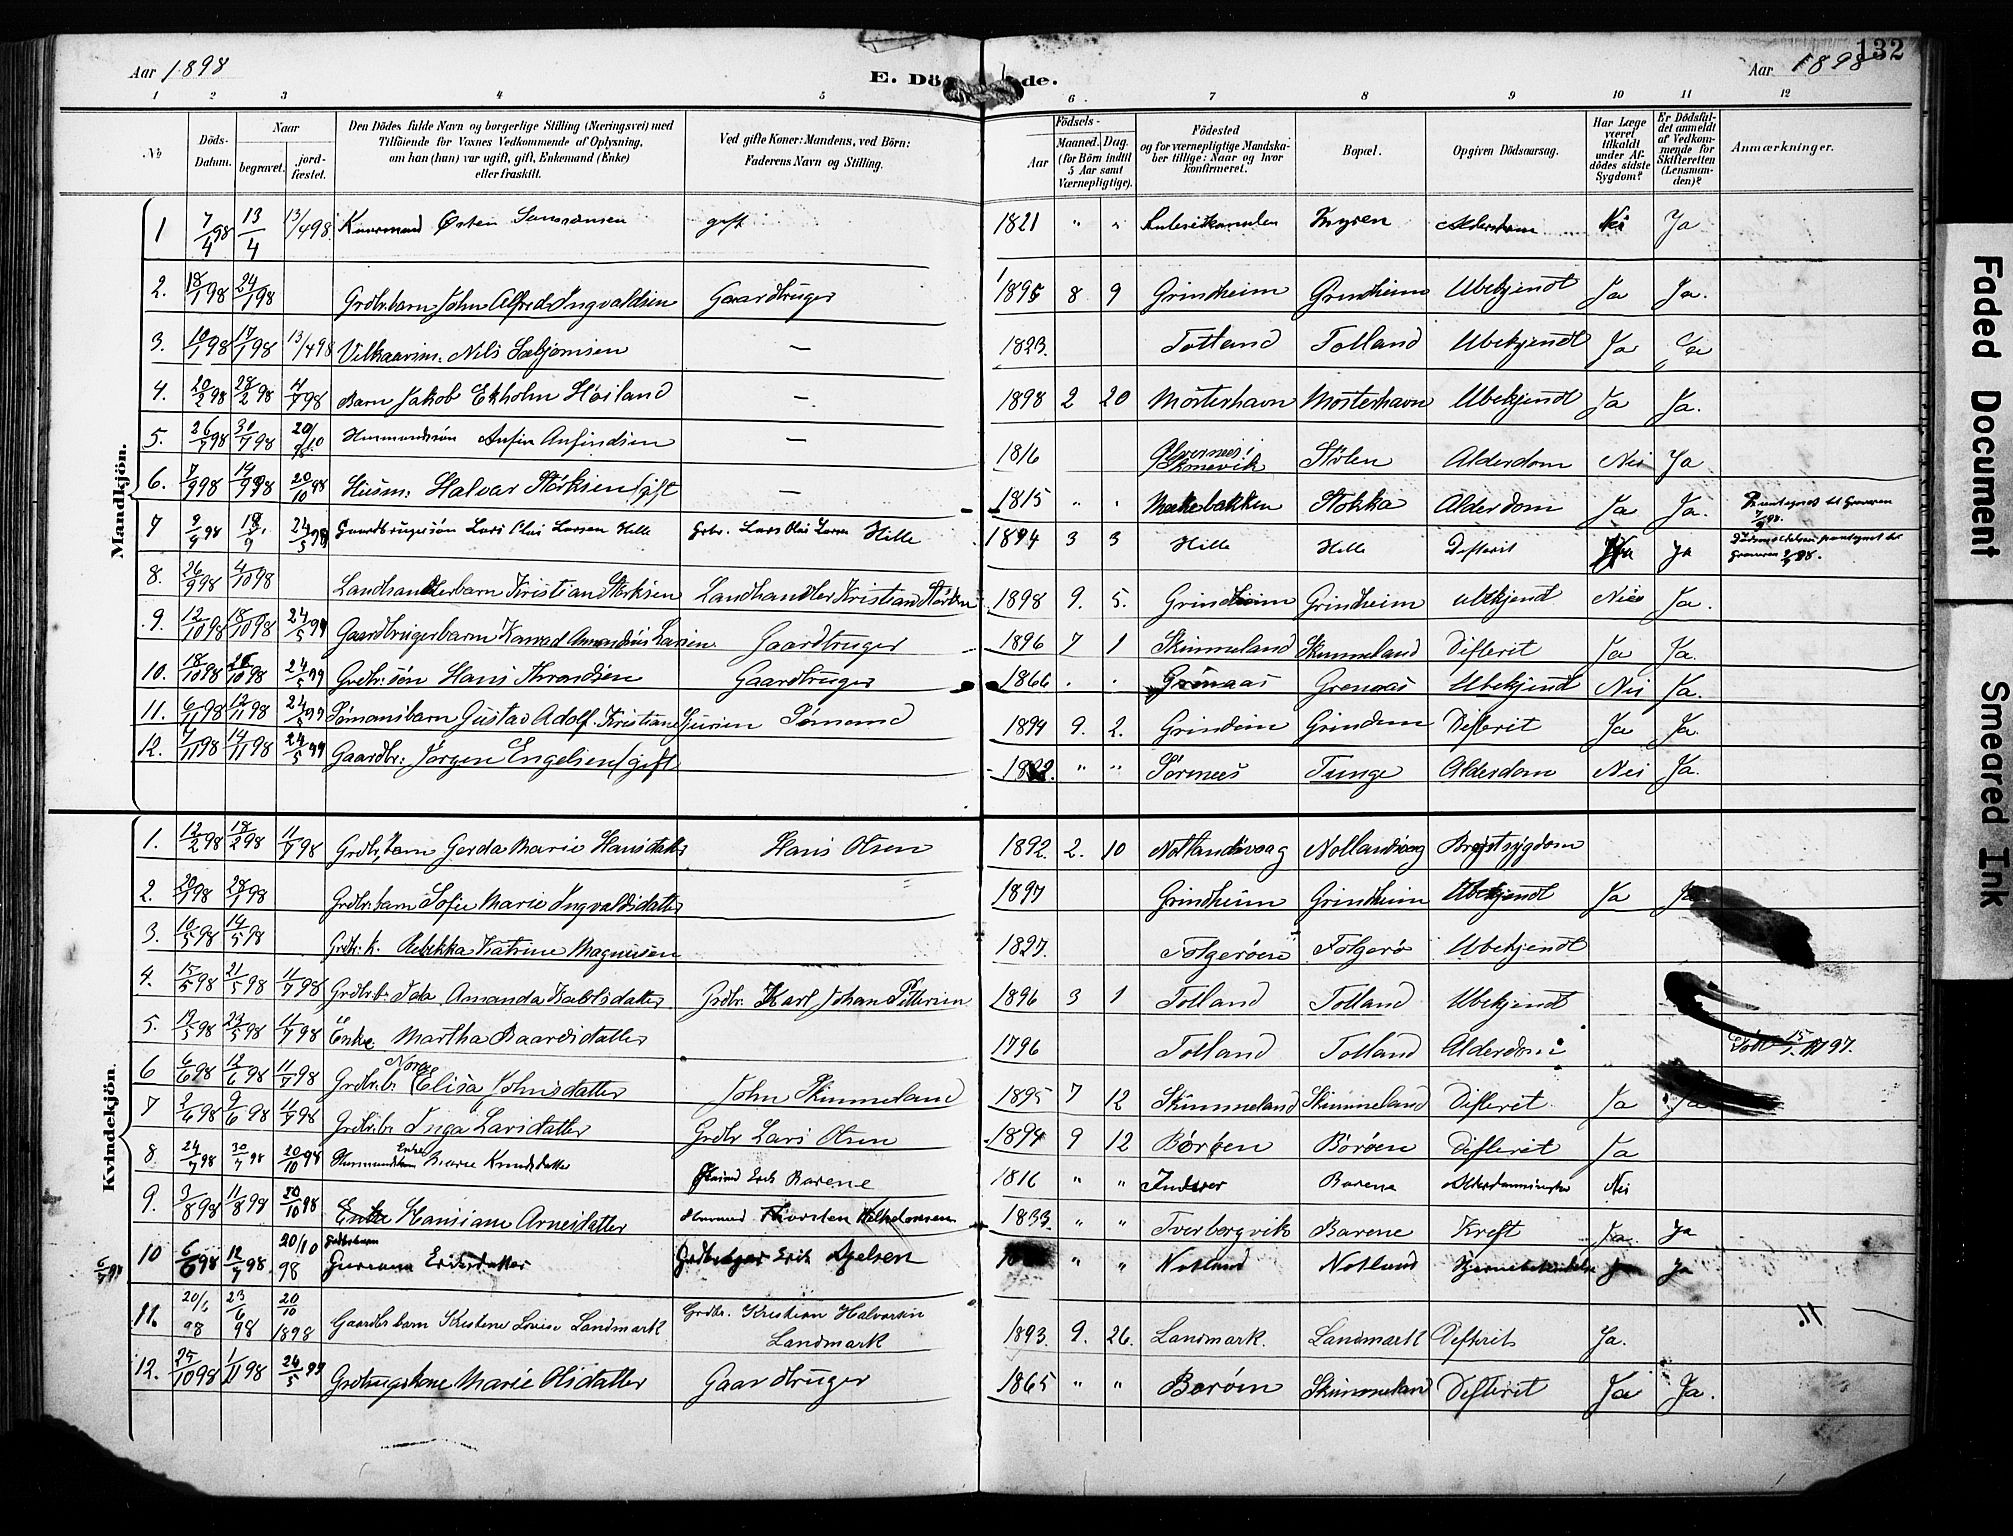 Aar 1898
E. Dö de.
Aar 1898
132
1 2 3 4 5 6 7 8 9 10 11 12
№
Döds-Datum.
Naar
begravet.
jord-fæstet.
Den Dödes fulde Navn og borgerlige Stilling (Næringsvei) med
Tilföiende for Voxnes Vedkommende af Oplysning,
om han (hun) var ugift, gift, Enkemand (Enke)
eller fraskilt.
Ved gifte Koner: Mandens, ved Börn:
Faderens Navn og Stilling.
Födsels-
Aar
Maaned. Dag.
(for Börn indtil
5 Aar samt
Værnepligtige).
Födested
og for værnepligtige Mandska-
ber tillige: Naar og hvor
konfirmeret.
Bopæl.
Opgiven Dödsaarsag.
Har Læge
været
tilkaldt
under Af-
dödes sidste
Sygdom?
Er Dödsfal-
det anmeldt
af Vedkom-
mende for
Skifteretten
(Lensman-
den)?
Anmærkninger.
Mandkjön.
1 7/4 98 13/4 13/4 98 Østen gift 1821 " " Alderdom Nei Ja
2. 18/1 98 24/1 98 Grdbr.barn John Alfred Ingvaldsen Gaardbruger 1895 8 9 Grindheim Grindheim Ubekjendt Ja Ja.
3. 10/1 98 17/1 98 13/4 98 Nils — 1823. Totland Totland Ubekjendt Ja Ja
4. 20/2 98 28/2 98 11/7 98 Barn Jakob Ekholm Høiland — 1898 2 20 Mosterhavn Mosterhavn Ubekjendt Ja Ja.
5. 26/7 98 30/7 98 20/10 98 Anfindsen — 1816 Stølen Alderdom Nei Ja
6. 7/9 98 14/9 98 20/10 98 Husm: Halvar Størksen/gift — 1815 " " Stokka Alderdom Ja Ja.
7 9/9 98 18/9 24/5 99 Gaardbrugersøn Lars Olai Larsen Hille Grbr. Lars Olai Larsen Hille 1894 3 3 Hille Hille Difterit Ja
8. 26/9 98 4/10 98 Landhandlerbarn Kristian Størksen Landhandler Kristian Størksen 1898 9. 5. Grindheim Grindheim Ubekjendt Nei Ja.
9. 12/10 98 18/10 98 24/5 99 Gaardbrugerbarn Konrad Amandus Larsen Gaardbruger 1896 7 1 Skimmeland Skimmeland Difterit Ja Ja.
10. 18/10 98 26/10 98 24/5 99 Grdbr.søn Hans Throndsen Gaardbruger 1866 " " Grønaas Grenaas Ubekjendt Nei Ja.
11. 6/11 98 12/11 98 24/5 99 Sømansbarn Gustav Adolf Kristian Sjursen Sømand 1894 9. 2. Grindeim Grindem Difterit Ja Ja.
12. 7/11 98 14/11 98 24/5 99 Gaardbr: Jørgen Engelsen/gift " " Sørenæs Tunge Alderdom Nei Ja.
Kvindekjön.
1. 12/2 98 18/2 98 11/7 98 Grdbr,barn Gerda Marie Hansdatter Hans Olsen 1892. 2. 10 Notlandsvaag Notlandsvag Brystsygdom
2. 20/1 98 28/1 98 Grdbr.barn Sofie Marie Ingvaldsdatter 1897 Grindheim Grindheim Ubekjendt Ja Ja
3. 10/5 98 14/5 98 Grdbr.k. Rebekka Katrine Magnusen 1827. Folgerøen Folgerø Ubekjendt
4. 15/5 98 21/5 98 11/7 98 Grdbr.b. Ida Amanda Karlsdatter Grdbr. Karl Johan Pettersen 1896 3 1 Totland Totland Ubekjendt
5. 19/5 98 23/5 98 11/7 98 Enke Martha Baardsdatter 1796 Totland Totland Alderdom
6 6/6 98 12/6 98 11/7 98 Grdbr.b. Nora Elisa Johnsdatter John Skimmeland 1895 7 12 Skimmeland Skimmeland Difterit Ja Ja
7 2/6 98 9/6 98 11/7 98 Grdbr.b. Inga Larsdatter Grdbr Lars Olsen 1894 9 12 Børøen Børøen Difterit Ja
8. 24/7 98 30/7 98 20/10 98 Enke Marie Knudsdatter Erik Barene 1816 " " Barene Nei
9. 3/8 98 11/8 98 20/10 98 Enke Hansiane Arnesdatter Thorsten 1833. " " Tverborgvik Barene Kræft Ja. Ja
6/7 98 10 6/6 98 12/7 98. 20/10 98 Grdbrbarn Eriksdatter Gardbruger Erik Axelsen " " Notland Notland Hjernebetændelse Ja Ja
11. 20/6 98 23/6 98 20/10 1898 Gaardbr.barn Kristine Lovise Landmark Grdbr. Kristian Halvorsen Landmark 1893. 9. 26. Landmark. Landmark Difterit Ja. 11.
12. 25/10 98 1/11 98 24/5 99 Marie Olsdatter Gaardbruger 1865 " " Børøen Skimmeland Difterit Ja Ja.
Faded Document
Smeared Ink